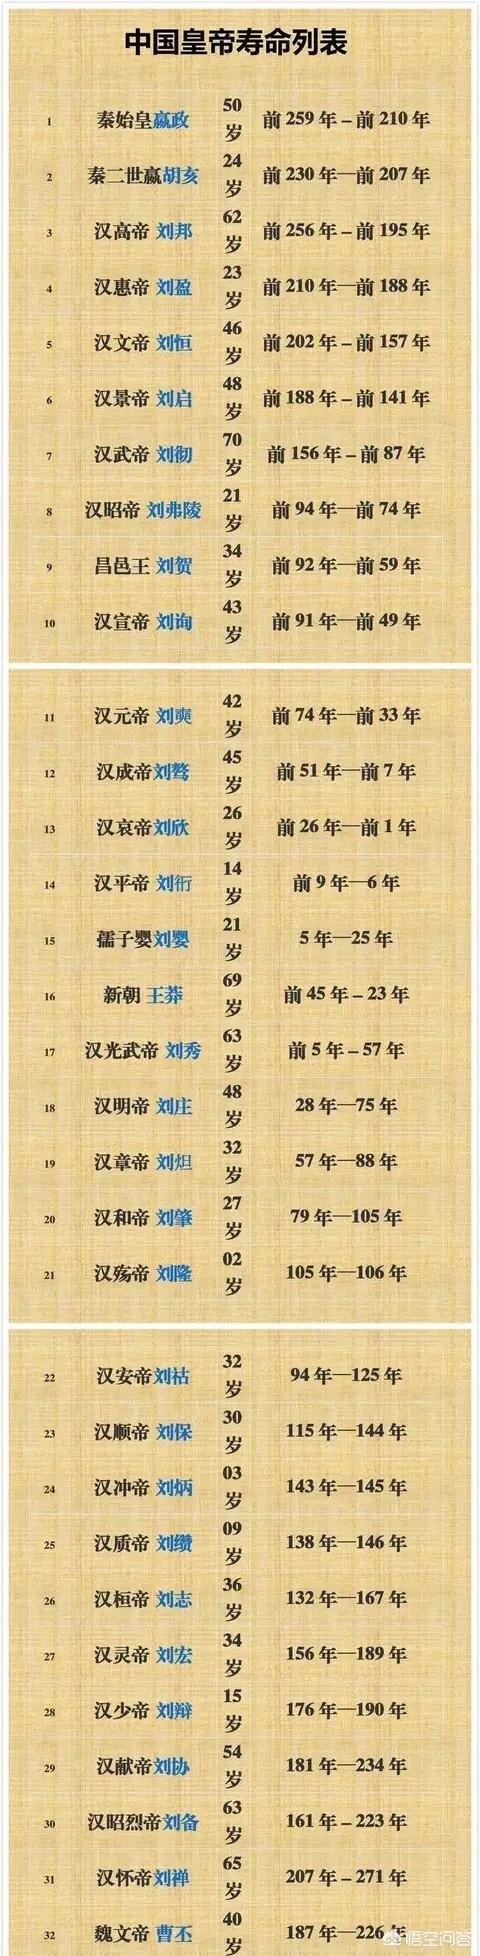 中国皇帝寿命列表
1 秦始皇嬴政 50岁 前 259 年 – 前 210 年
2 秦二世嬴胡亥 24岁 前 230 年—前 207 年
3 汉高帝 刘邦 62岁 前 256 年 – 前 195 年
4 汉惠帝 刘盈 23岁 前 210 年—前 188 年
5 汉文帝 刘恒 46岁 前 202 年 – 前 157 年
6 汉景帝 刘启 48岁 前 188 年 – 前 141 年
7 汉武帝 刘彻 70岁 前 156 年 – 前 87 年
8 汉昭帝 刘弗陵 21岁 前 94 年—前 74 年
9 昌邑王 刘贺 34岁 前 92 年—前 59 年
10 汉宣帝 刘询 43岁 前 91 年—前 49 年
11 汉元帝 刘奭 42岁 前 74 年—前 33 年
12 汉成帝刘骜 45岁 前 51 年—前 7 年
13 汉哀帝刘欣 26岁 前 26 年—前 1 年
14 汉平帝 刘衎 14岁 前 9 年—6 年
15 孺子婴刘婴 21岁 5 年—25 年
16 新朝 王莽 69岁 前 45 年 – 23 年
17 汉光武帝 刘秀 63岁 前 5 年 – 57 年
18 汉明帝 刘庄 48岁 28 年—75 年
19 汉章帝 刘炟 32岁 57 年—88 年
20 汉和帝 刘肇 27岁 79 年—105 年
21 汉殇帝 刘隆 02岁 105 年—106 年
22 汉安帝刘祜 32岁 94 年—125 年
23 汉顺帝 刘保 30岁 115 年—144 年
24 汉冲帝 刘炳 03岁 143 年—145 年
25 汉质帝 刘缵 09岁 138 年—146 年
26 汉桓帝 刘志 36岁 132 年—167 年
27 汉灵帝 刘宏 34岁 156 年—189 年
28 汉少帝 刘辩 15岁 176 年—190 年
29 汉献帝刘协 54岁 181 年—234 年
30 汉昭烈帝刘备 63岁 161 年 – 223 年
31 汉怀帝刘禅 65岁 207 年 – 271 年
32 魏文帝 曹丕 40岁 187 年—226 年
悟空问答